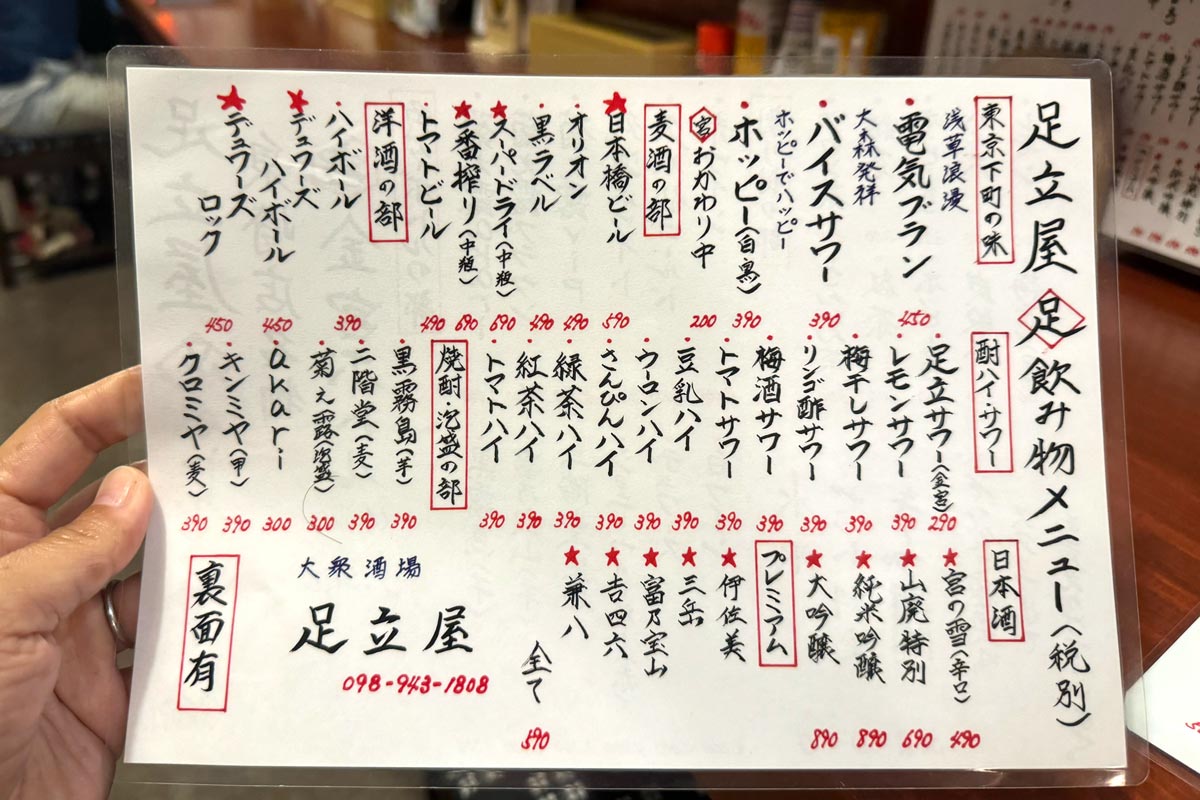 足立屋 足 飲み物メニュー(税別)
東京下町の味
浅草浪漫
・電気ブラン 450
大森発祥
・バイスサワー 390
ホッピーでハッピー
・ホッピー(白・黒) 390
宮 おかわり中 200
麦酒の部
★日本橋ビール 590
・オリオン 490
・黒ラベル 490
★スーパードライ(中瓶) 690
★一番搾り(中瓶) 690
・トマトビール 490
洋酒の部
・ハイボール 390
★デュワーズハイボール 450
★デュワーズロック 450
酎ハイ・サワー
・足立サワー(金宮) 290
・レモンサワー 390
・梅干しサワー 390
・リンゴ酢サワー 390
・梅酒サワー 390
・トマトサワー 390
・豆乳ハイ 390
・ウーロンハイ 390
・さんぴんハイ 390
・緑茶ハイ 390
・紅茶ハイ 390
・トマトハイ 390
焼酎 泡盛の部
・黒霧島(芋) 390
・二階堂(麦) 390
・菊之露(泡盛) 300
・akari 300
・キンミヤ(甲) 390
・クロミヤ(麦) 390
日本酒
★宮の雪(辛口) 490
★山廃特別 690
★純米吟醸 890
★大吟醸 890
プレミアム
★伊佐美
★三岳
★富乃宝山
★吉四六
★兼八
全て 590
大衆酒場
足立屋
098-943-1808
裏面有